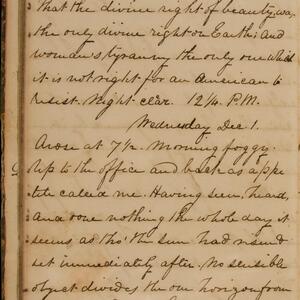 that the divine right of beauty, was
the only divine right on Earth; and
woman's tyranny the only one which
it is not right for an American to
resist. Night clear. 12¼ P.M.
Wednesday Dec 1.
Arose at 7½. Morning foggy.
Up to the office and back as appe-
tite called me. Having seen, heard,
and done nothing the whole day it
seems as tho' the sun had risen &
set immediately after. No sensible
object divides the one horizon from